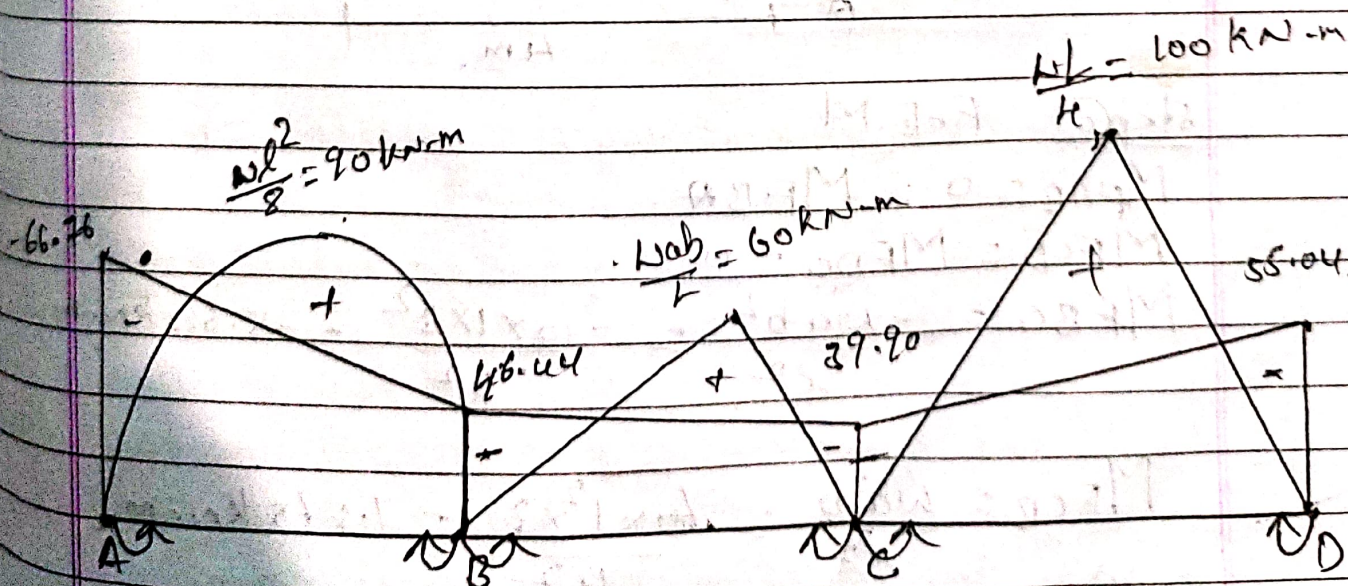 WL/4 = 100 kN-m
wl²/8 = 90 kN-m
-66.76
Wab/L = 60 kN-m
+
+
55.04
-
39.90
46.44
+
-
-
-
A
B
C
D